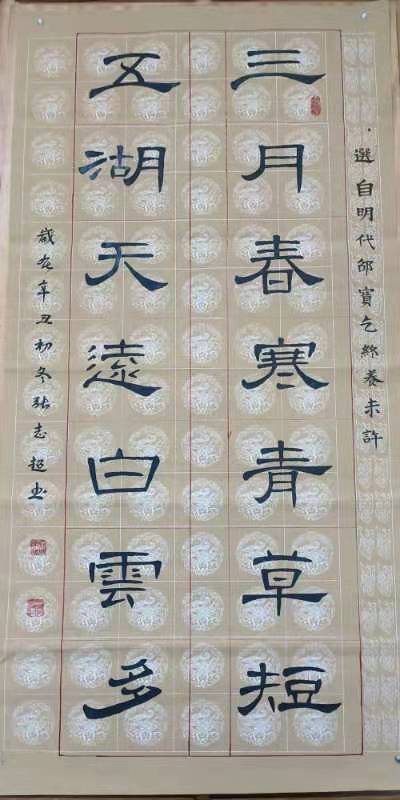 選自明代邵寳乞終養未許
三月春寒青草短
五湖天遠白雲多
歲在辛丑初冬張志超书